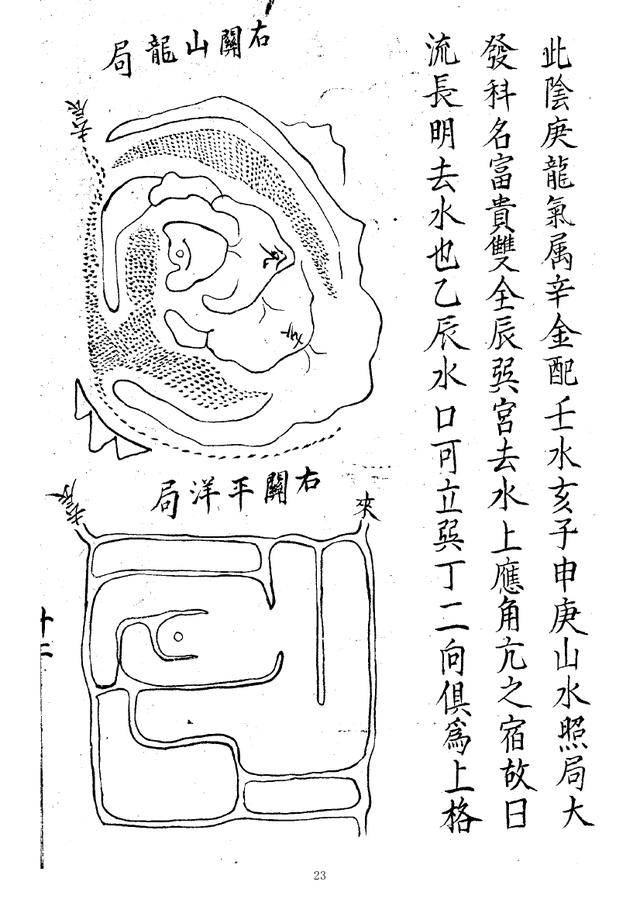 此陰庚龍氣属辛金配壬水亥子申庚山水照局大
發科名富貴雙全辰巽宮去水上應角亢之宿故曰
流長明去水也乙辰水口可立巽丁二向俱爲上格
右關山龍局
去辰
右關平洋局
來
去辰
十二
23